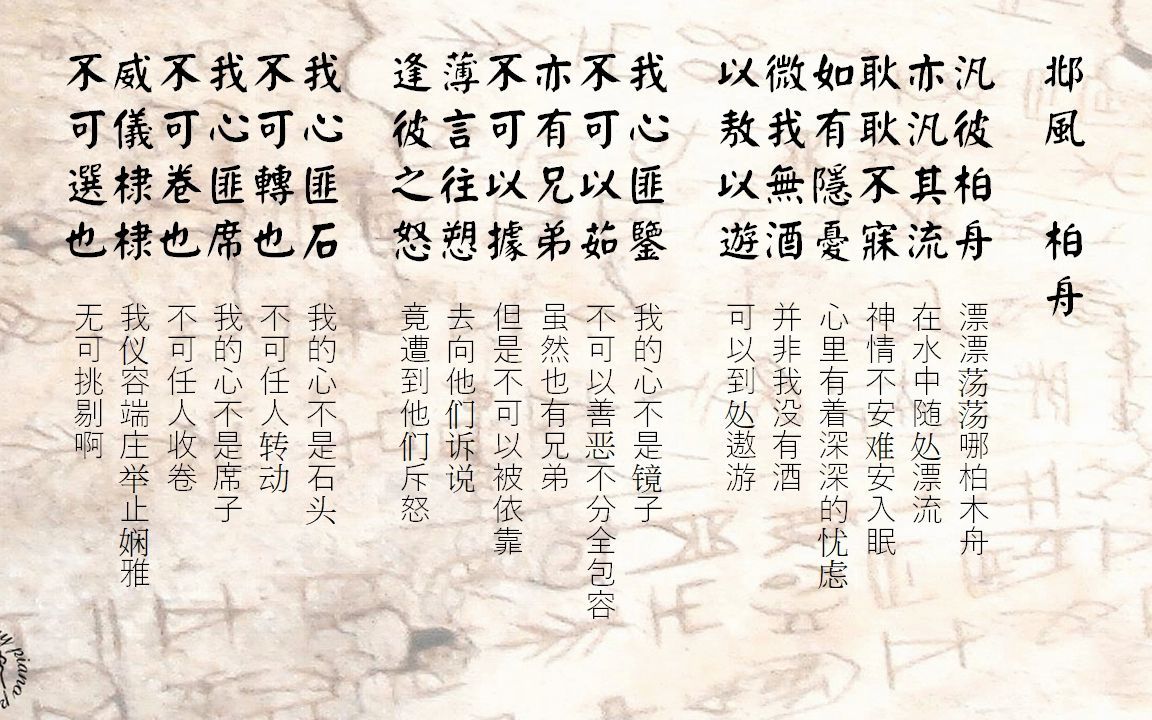 邶風 柏舟
汎彼柏舟
漂漂荡荡哪柏木舟
亦汎其流
在水中随处漂流
耿耿不寐
神情不安难安入眠
如有隱憂
心里有着深深的忧虑
微我無酒
并非我没有酒
以敖以遊
可以到处遨游
我心匪鑒
我的心不是镜子
不可以茹
不可以善恶不分全包容
亦有兄弟
虽然也有兄弟
不可以據
但是不可以被依靠
薄言往愬
去向他们诉说
逢彼之怒
竟遭到他们斥怒
我心匪石
我的心不是石头
不可轉也
不可任人转动
我心匪席
我的心不是席子
不可卷也
不可任人收卷
威儀棣棣
我仪容端庄举止娴雅
不可選也
无可挑剔啊
piano